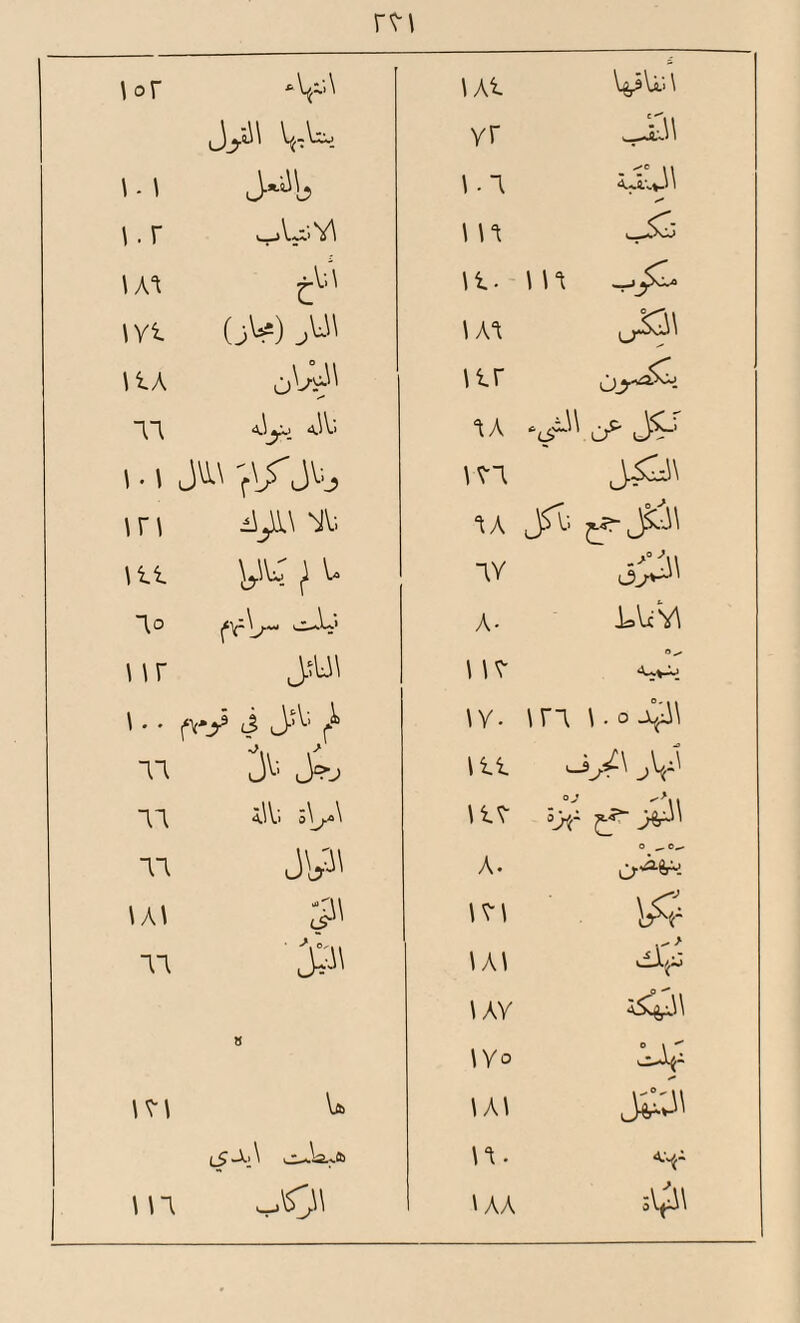 ٢٣١
١٨٤
النقب ٧٢
المنقبة ١٠٦
نكب ١١٩
منكب ١١٩ ١٤٠
النكس ١٨٩
ينكصون ١٤٢
نكل عن الشيء ٩٨
النكل ١٣٦
النكل جمع ناكل ٩٨
النمرق ٦٧
الأنماط ٨٠
ينميه ١١٣
النهد ١٠٥ ١٢٦ ١٧٠
انهار الجرف ١٤٤
النهز جمع نهزة ١٤٣
ينهضن ٨٠
نهكا ١٣١
نهك ١٨١
النهكة ١٨٧
نهلت ١٧٥
المنهل ١٨١
نهيه ١٩٠
النهاة ١٨٨
انتهاء ١٥٢
ينتابها
١٠١
الانتياب ١٠٢
اناخ ١٨٩
النار (مجاز) ١٧٤
النيران ١٤٨
ناله ينوله ٦٦
ونال كرام المال ١٠١
نالا الملوك ١٢١
ما لم ينالها ١٤٤
نيلت ٦٥
النائل ١١٢
لم نائل في قومهم ١٠٠
رجل نال ٦٦
امراة نالة ٦٦
النوال ٦٦
النيّ ١٨١
النيل ٦٦
ه
ها ١٣١
هبطت ايدي
الركاب ١١٦